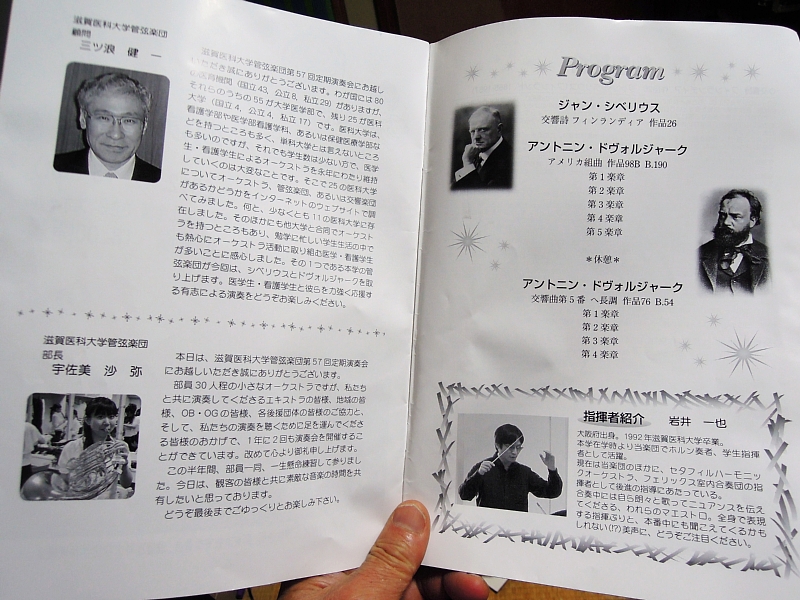 滋賀医科大学管弦楽団
顧問
三ツ浪 健一
滋賀医科大学管弦楽団第57回定期演奏会にお越し
いただき誠にありがとうございます。わが国には80
の医育機関（国立43、公立8、私立29）がありますが、
それらのうちの55が大学医学部で、残り25が医科
大学（国立4、公立4、私立17）です。医科大学は、
看護学部や医学部看護学科、あるいは保健医療学部な
どを持つところも多く、単科大学とは言えないところ
も多いのですが、それでも学生数は少ない方で、医学
生・看護学生によるオーケストラを永年にわたり維持
していくのは大変なことです。そこで25の医科大学
についてオーケストラ、管弦楽団、あるいは交響楽団
があるかどうかをインターネットのウェブサイトで調
べてみました。何と、少なくとも11の医科大学に存
在しました。そのほかにも他大学と合同でオーケスト
ラを持つところもあり、勉学に忙しい学生生活の中で
も熱心にオーケストラ活動に取り組む医学・看護学生
が多いことに感心しました。その1つである本学の管
弦楽団が今回は、シベリウスとドヴォルジャークを取
り上げます。医学生・看護学生と彼らを力強く応援す
る有志による演奏をどうぞお楽しみください。
滋賀医科大学管弦楽団
部長
宇佐美 沙弥
本日は、滋賀医科大学管弦楽団第57回定期演奏会
にお越しいただき誠にありがとうございます。
部員30人程の小さなオーケストラですが、私たち
と共に演奏してくださるエキストラの皆様、地域の皆
様、OB・OGの皆様、各後援団体の皆様のご協力と、
そして、私たちの演奏を聴くために足を運んでくださ
る皆様のおかげで、1年に2回も演奏会を開催するこ
とができています。改めて心より御礼申し上げます。
この半年間、部員一同、一生懸命練習して参りまし
た。今日は、観客の皆様と共に素敵な音楽の時間を共
有したいと思っております。
どうぞ最後までごゆっくりとお楽しみ下さい。
Program
ジャン・シベリウス
交響詩 フィンランディア 作品26
アントニン・ドヴォルジャーク
アメリカ組曲 作品98B B.190
第1楽章
第2楽章
第3楽章
第4楽章
第5楽章
＊休憩＊
アントニン・ドヴォルジャーク
交響曲第5番 ヘ長調 作品76 B.54
第1楽章
第2楽章
第3楽章
第4楽章
指揮者紹介 岩井 一也
大阪府出身。1992年滋賀医科大学卒業。
本学在学時より当楽団でホルン奏者、学生指揮
者として活躍。
現在は当楽団のほかに、セタフィルハーモニッ
クオーケストラ、フェリックス室内合奏団の指
揮者として後進の指導にあたっている。
合奏中には自ら朗々と歌ってニュアンスを伝え
てくださる、われらのマエストロ。全身で表現
する指揮ぶりと、本番中にも聞こえてくるかも
しれない(!?)美声に、どうぞご注目ください。